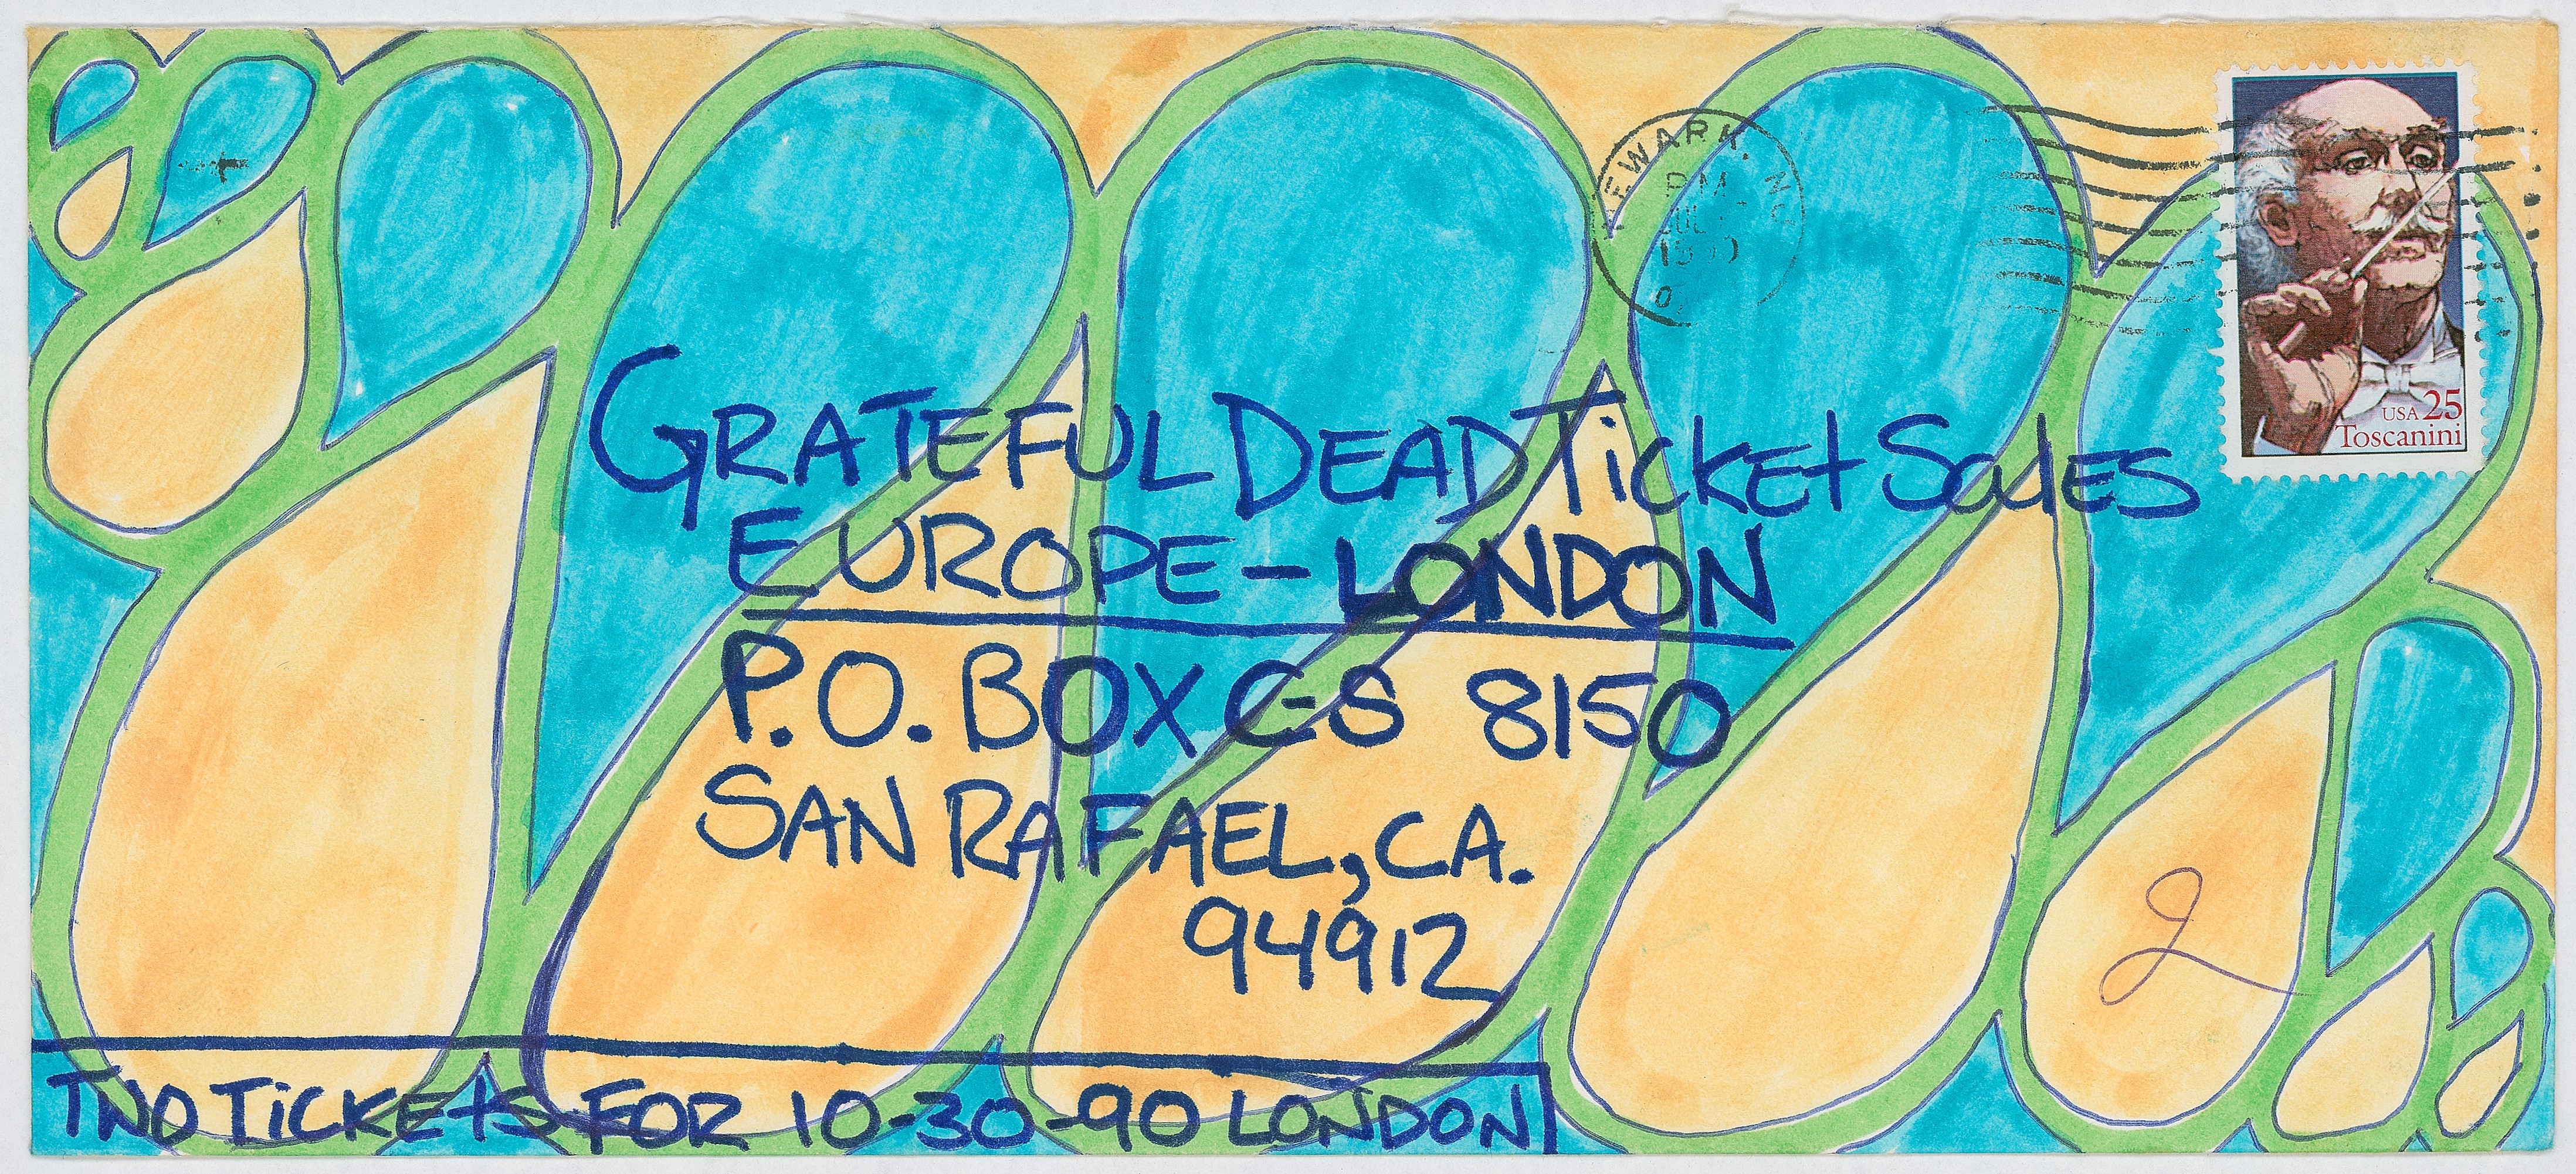 NEWARK, NJ
PM
JUL
USA 25
Toscanini
GRATEFUL DEAD TickEt SalES
EUROPE - LONDON
P.O. BOX C-S 8150
SAN RAFAEL, CA.
94912
2
TWO TiCKEtS FOR 10-30-90 LONDON